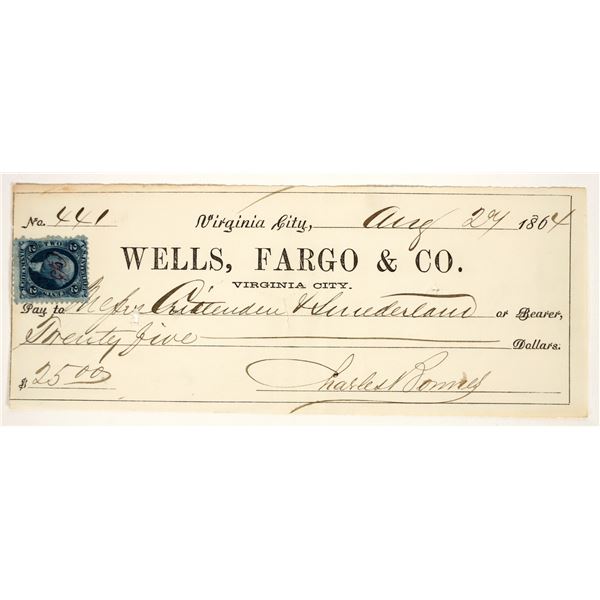 No. 441 Virginia City, Aug 27 1864
WELLS, FARGO & CO.
VIRGINIA CITY.
Pay to Messrs Crittenden & Sunderland or Bearer,
Twenty five Dollars.
$ 25.00 Charles Bonner
TWO
2 2
CENTS